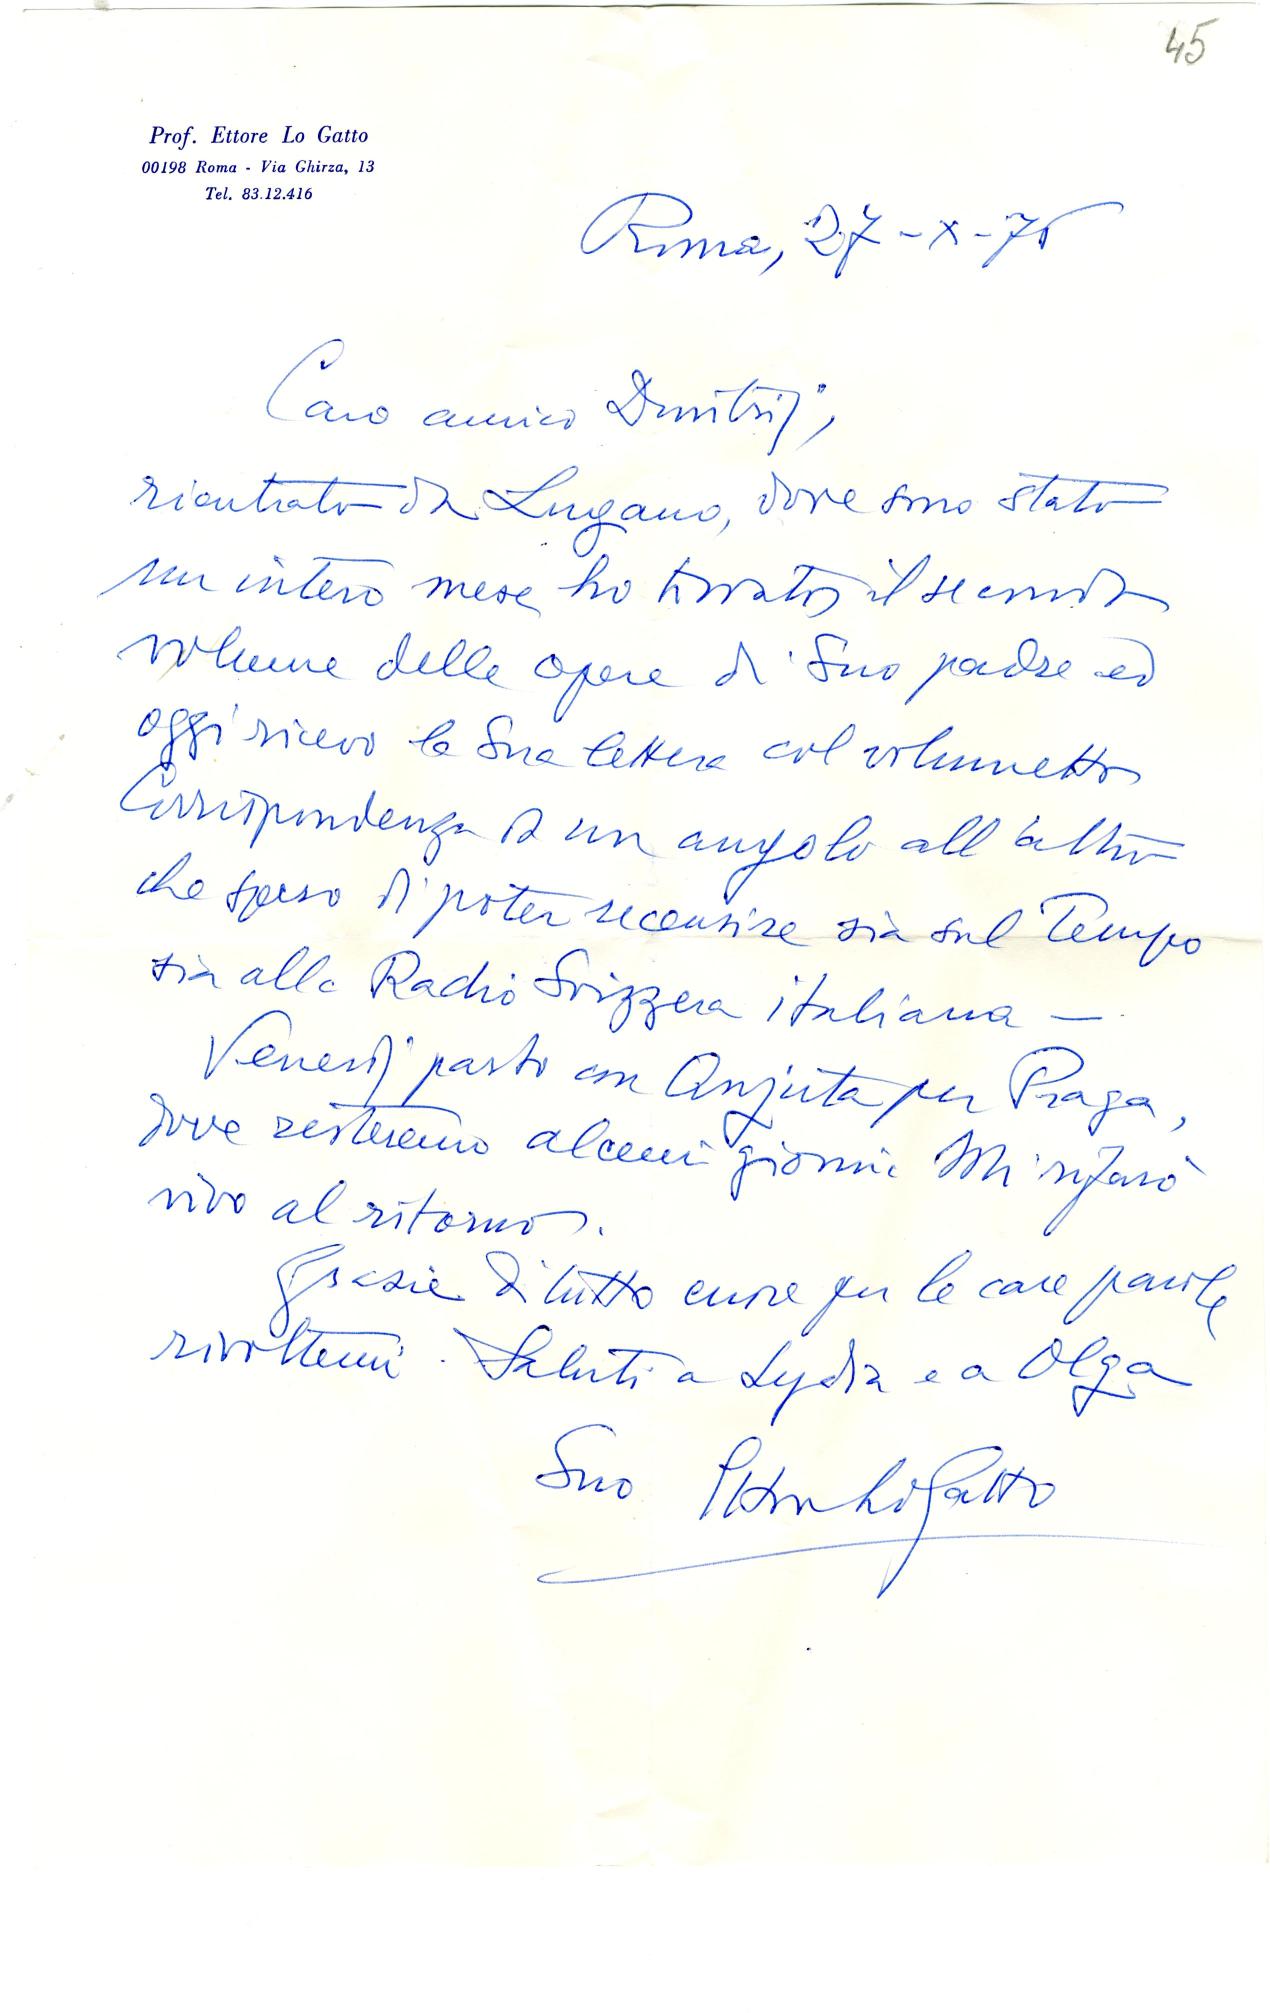 45
Prof. Ettore Lo Gatto
00198 Roma - Via Ghirza, 13
Tel. 83.12.416
Roma, 27-X-75
Caro amico Dmitrij,
rientrato da Lugano, dove sono stato
un intero mese ho trovato il secondo
volume delle opere di Suo padre ed
oggi ricevo la Sua lettera col volumetto
Corrispondenza da un angolo all'altro
che spero di poter recensire sia sul Tempo
sia alla Radio Svizzera italiana —
Venerdì parto con Anjuta per Praga,
dove resteremo alcuni giorni. Mi rifarò
vivo al ritorno.
Grazie di tutto cuore per le care parole
rivoltemi. Saluti a Lydia e a Olga
Suo Ettore Lo Gatto